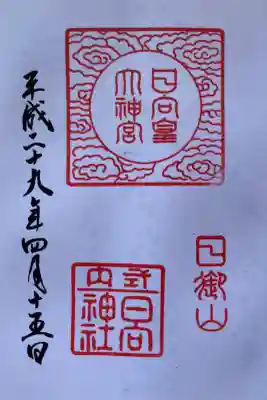 日向皇
大神宮
日御山
式日向
内神社
平成二十九年四月十五日